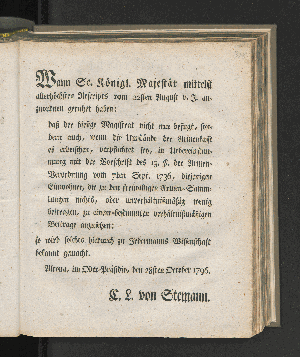 Wann Se. Königl. Majestät mittelst
allerhöchsten Rescripts vom 22sten August d. J. an-
zuordnen geruhet haben:
daß der hiesige Magistrat nicht nur befugt, son-
dern auch, wenn die Umstände der Armenkasse
es erforschen, verpflichtet sey, in Ueberein-
mung mit der Vorschrift des 13. §. der Armen-
Verordnung vom 7ten Sept. 1736, diejenigen
Einwohner, die zu den freywilligen Armen-Samm-
lungen nichts, oder unverhältnißmäßig wenig
beitragen, zu einem bestimmten verhältnißmäßigen
Beitrage anzusetzen:
so wird solches hiedurch zu Jedermanns Wissenschaft
bekannt gemacht.
Altona, im Ober-Präsidio, den 28sten October 1796.
C. L. von Stemann.